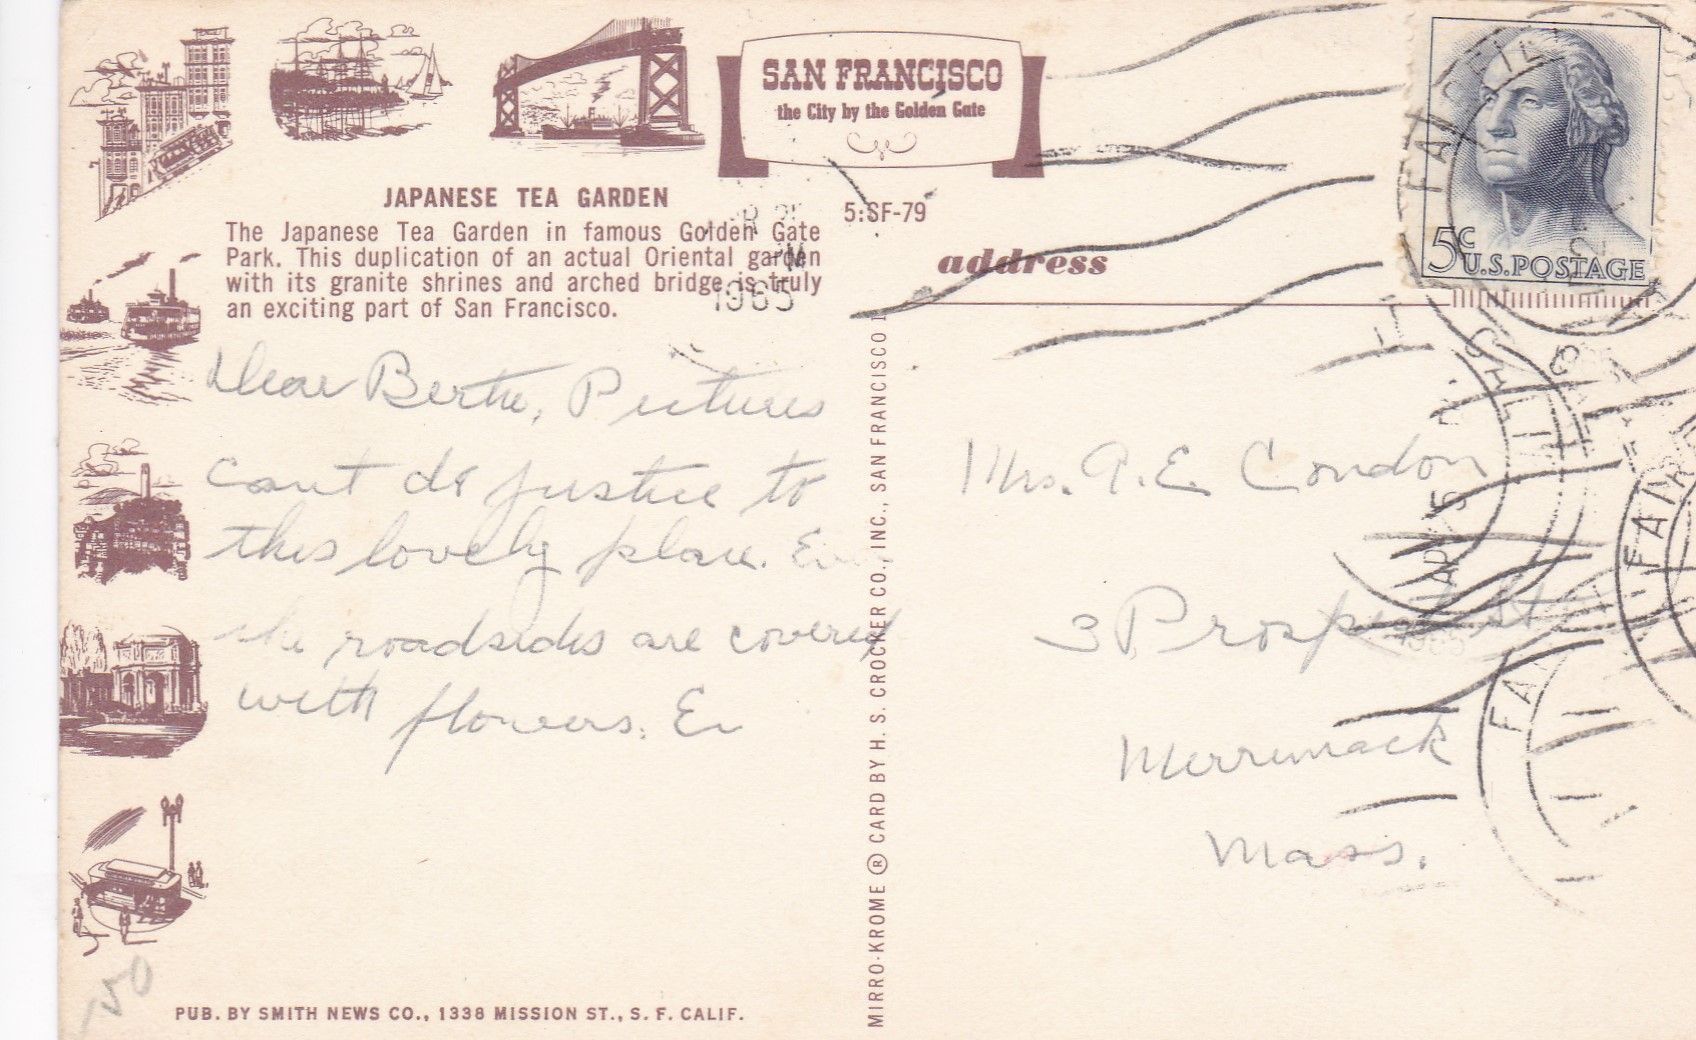 SAN FRANCISCO
the City by the Golden Gate
JAPANESE TEA GARDEN
5:SF-79
The Japanese Tea Garden in famous Golden Gate
Park. This duplication of an actual Oriental garden
with its granite shrines and arched bridge is truly
an exciting part of San Francisco.
1965
address
5c
U.S. POSTAGE
Dear Berthe, Pictures
cant do justice to
this lovely place.
the roadsides are covered
with flowers. Ev
Mrs. A. E. Condon
3 Prospect St
Merrimack
Mass.
APR
1965
MIRRO-KROME ® CARD BY H. S. CROCKER CO., INC., SAN FRANCISCO
150
PUB. BY SMITH NEWS CO., 1338 MISSION ST., S. F. CALIF.